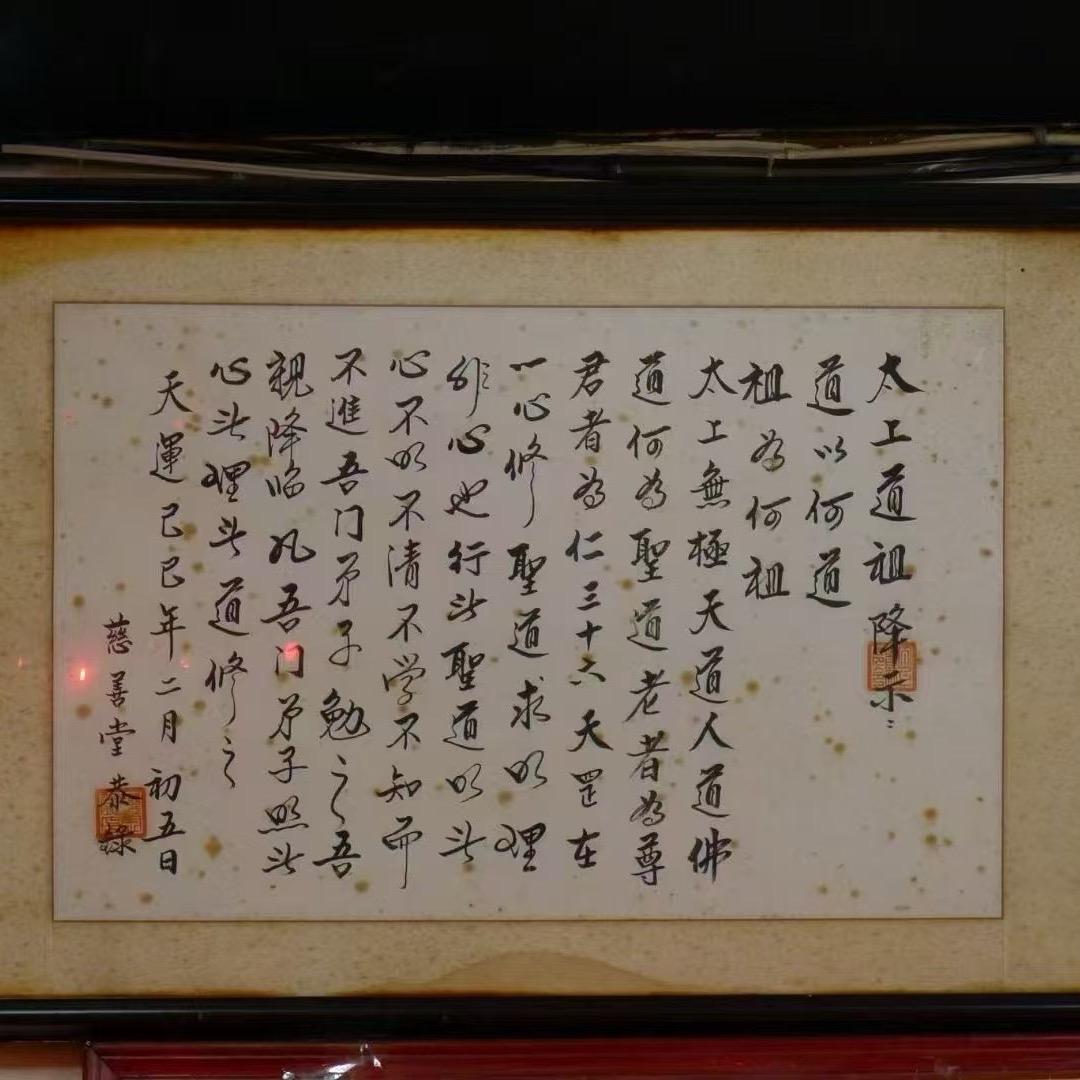 太上道祖降示
道以何道
祖為何祖
太上無極天道人道佛
道何為聖道老者為尊
君者為仁三十六天罡在
一心修聖道求明理
非心也行此聖道明此
心不明不清不学不知而
不進吾门弟子勉之吾
親降临凡吾门弟子照此
心此理此道修之
天運己巳年二月初五日
慈善堂恭錄